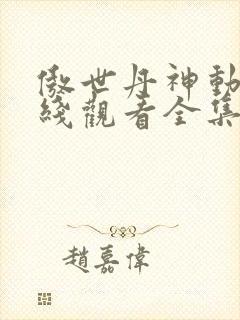 傲世丹神動
綫觀看全集
趙嘉偉